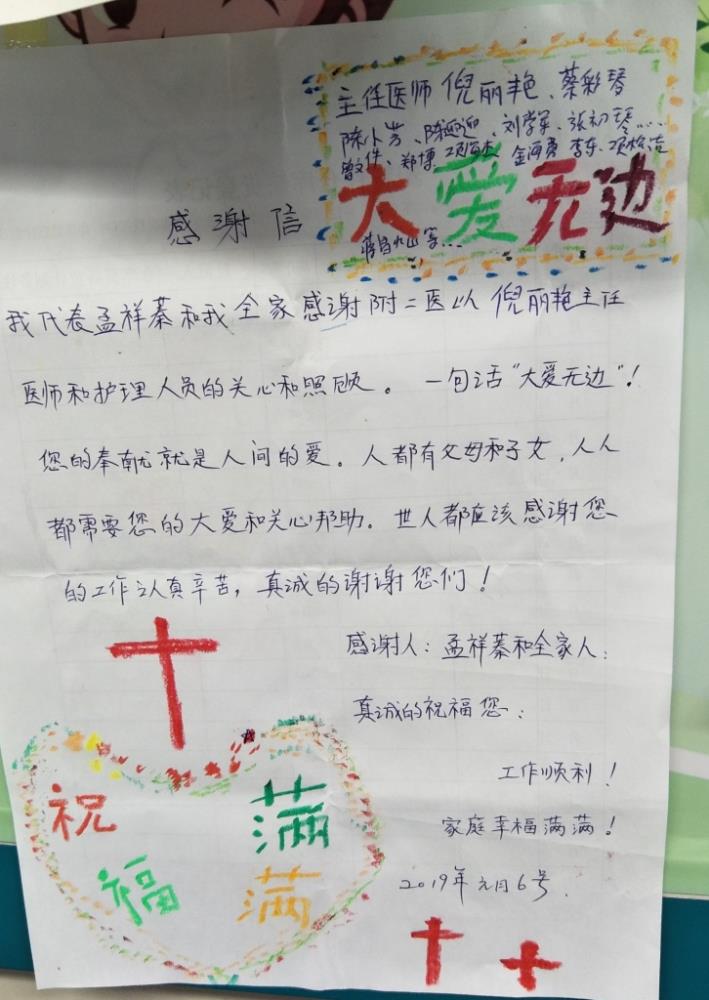 主任医师 倪丽艳、蔡彩琴
陈小芳、陈迎迎、刘学军、张初琴……
郑博、项海杰 金海勇 李东、项松洁
大爱无边
等…
感谢信
我代表孟祥蓁和我全家感谢附二医以倪丽艳主任
医师和护理人员的关心和照顾。一句话“大爱无边”!
您的奉献就是人间的爱。人都有父母和子女,人人
都需要您的大爱和关心帮助。世人都应该感谢您
的工作认真辛苦,真诚的谢谢您们!
感谢人:孟祥蓁和全家人:
真诚的祝福您:
工作顺利!
家庭幸福满满!
2019年元月6号.
祝 满
福 满